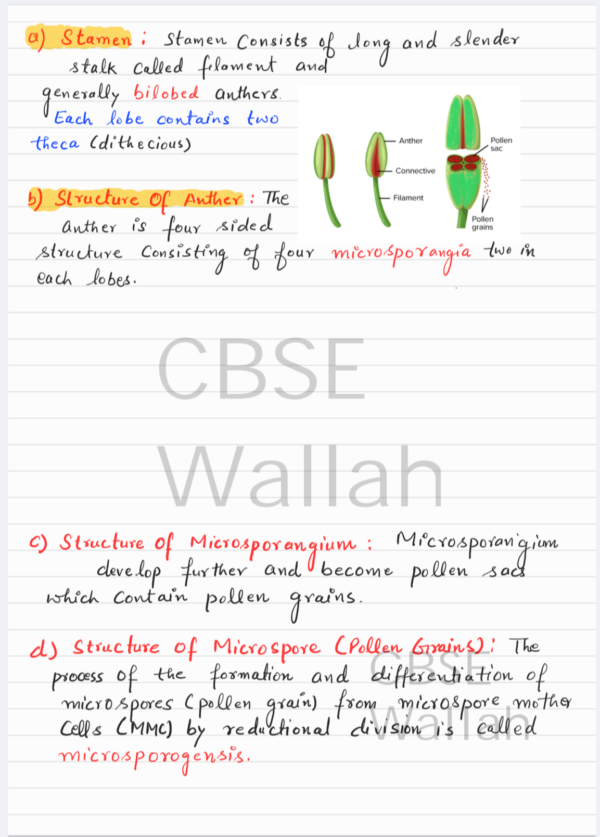 a) Stamen : Stamen Consists of long and slender
stalk called filament and
generally bilobed anthers.
Each lobe contains two
theca (dithecious)
Anther
Connective
Filament
Pollen
sac
Pollen
grains
b) Structure Of Anther : The
anther is four sided
structure Consisting of four microsporangia two in
each lobes.
CBSE
Wallah
c) Structure of Microsporangium : Microsporangium
develop further and become pollen sacs
which Contain pollen grains.
d) Structure of Microspore (Pollen Grains) : The
process of the formation and differentiation of
microspores (pollen grain) from microspore mother
Cells (MMC) by reductional division is called
microsporogensis.
CBSE
Wallah